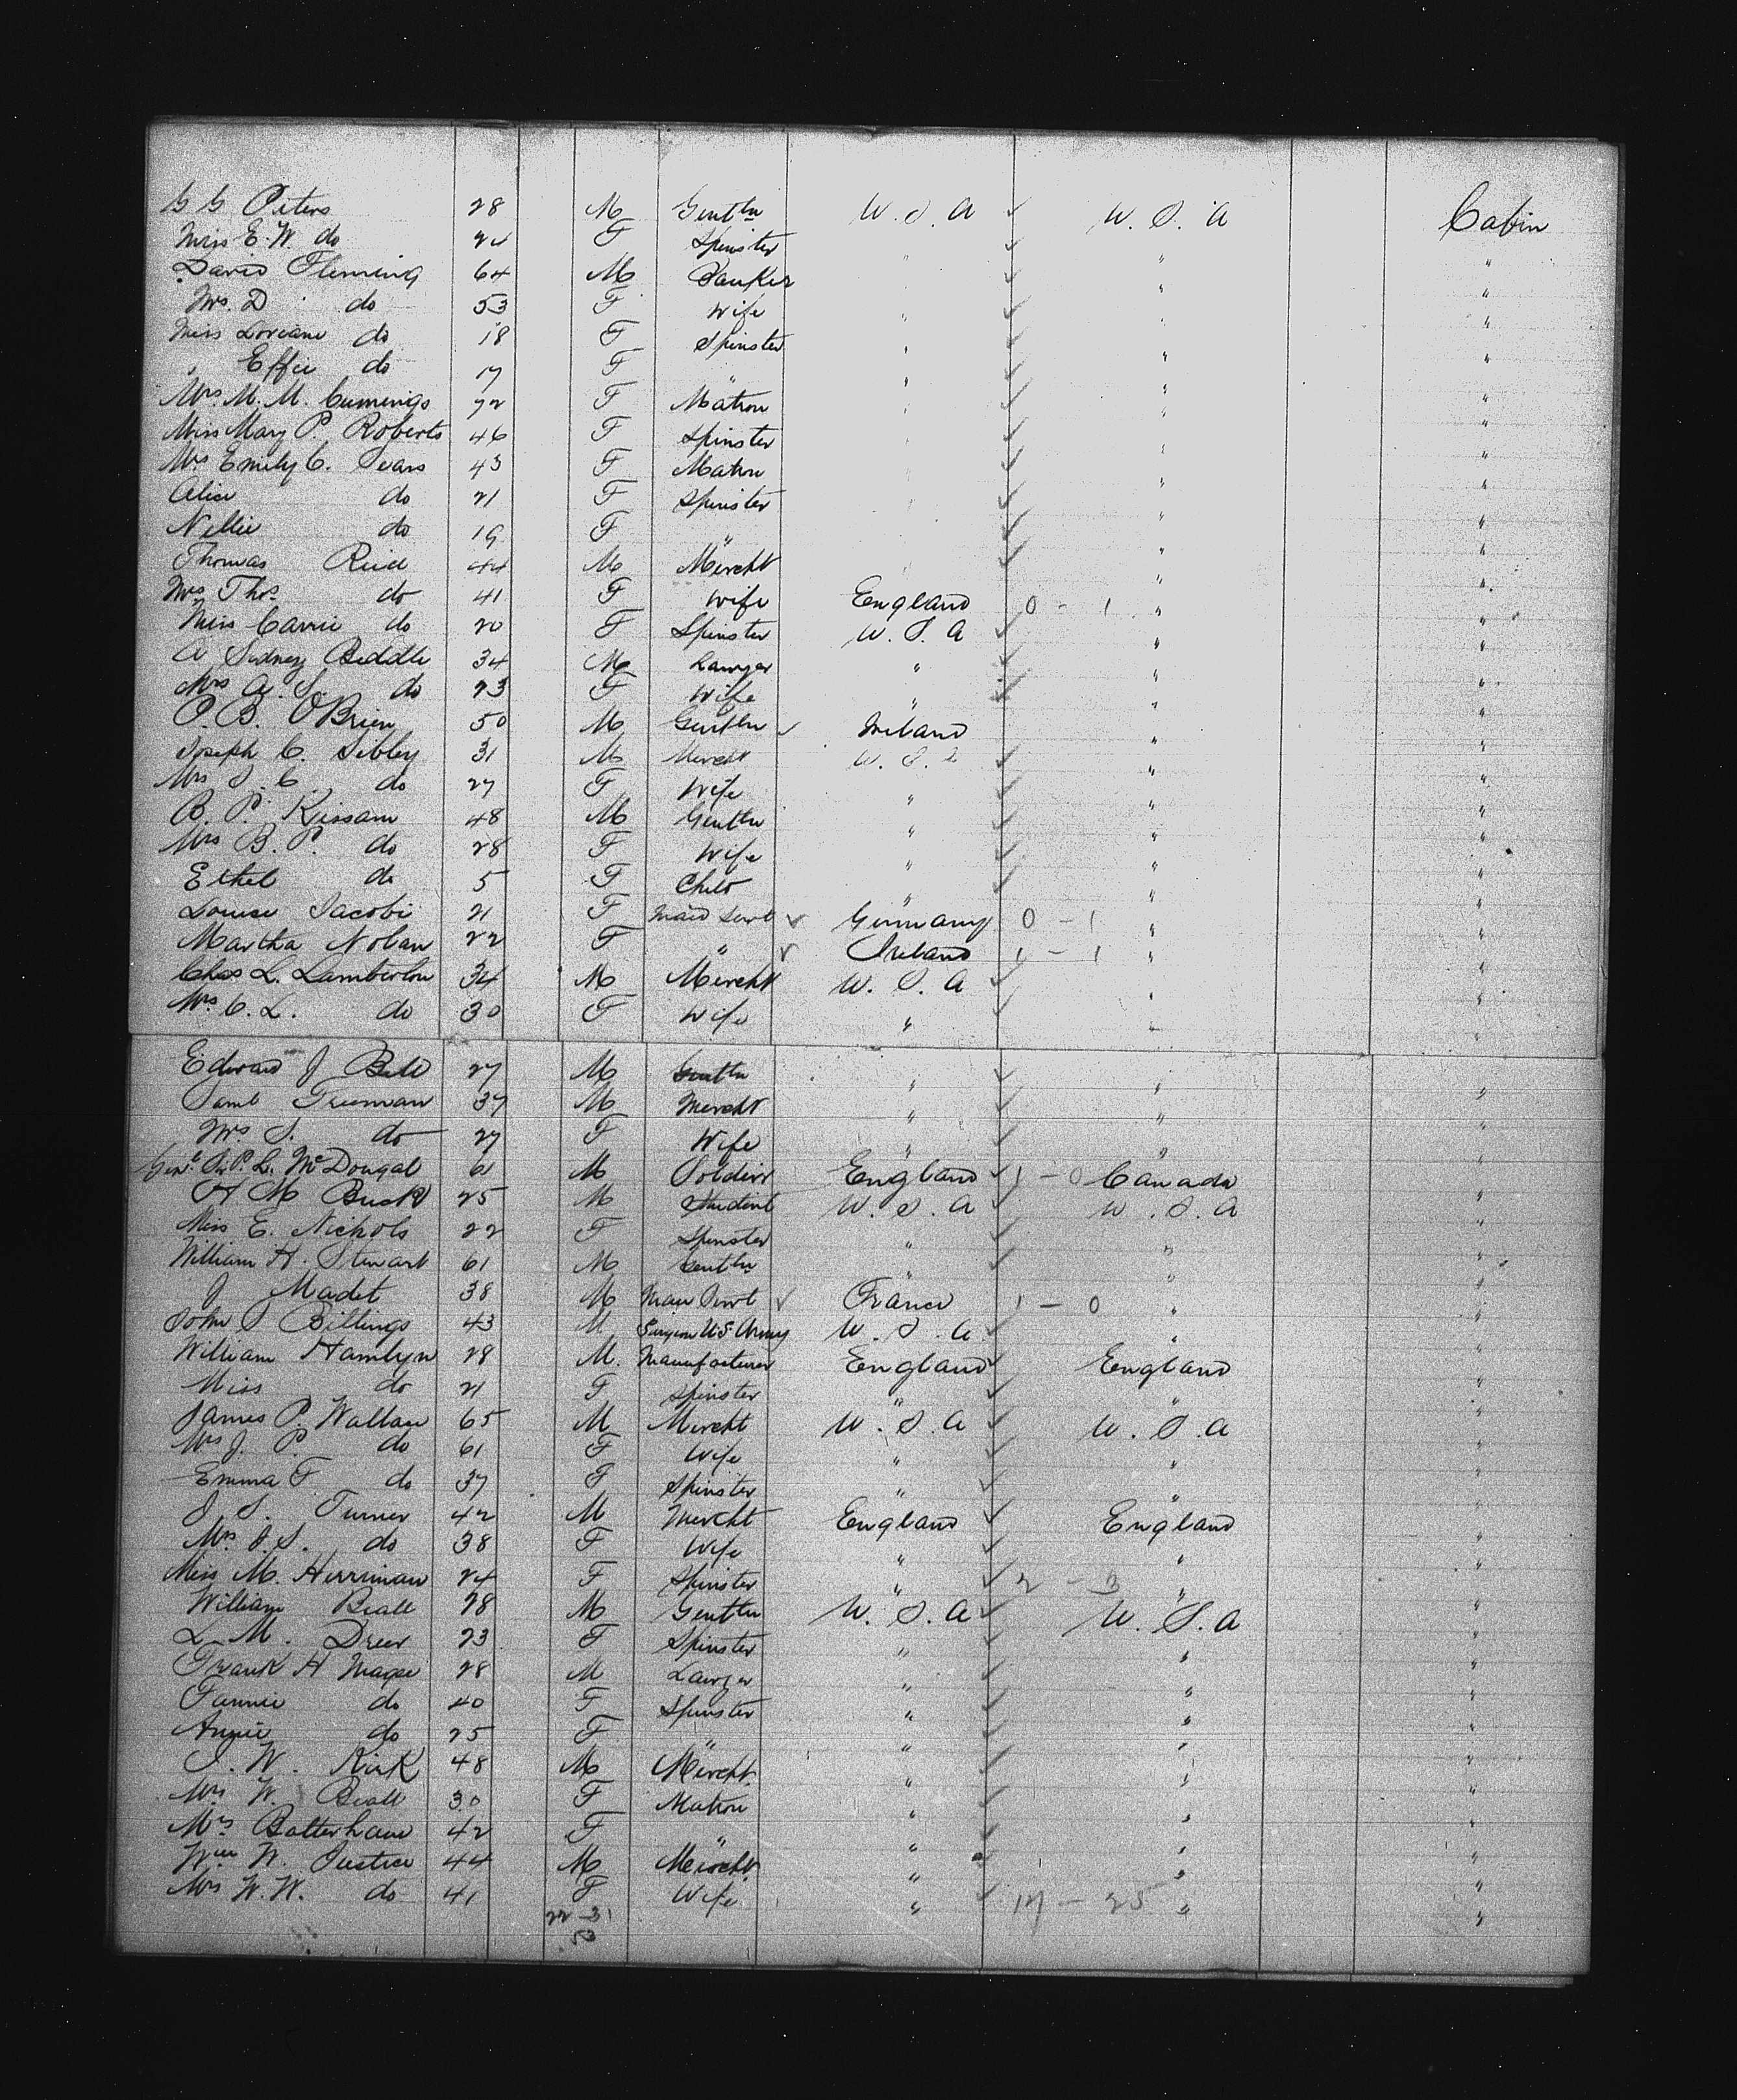 G G Peters 28 M Gentln U.S.A U.S.A Cabin
Miss E. W do 24 F Spinster " " "
David Fleming 64 M Banker " " "
Mrs. D do 53 F Wife " " "
Miss Loreane do 18 F Spinster " " "
" Effie do 17 F " " " "
Mrs. M. M. Cummings 72 F Matron " " "
Miss Mary P. Roberts 46 F Spinster " " "
Mrs Emily C. Sears 43 F Matron " " "
Alice do 21 F Spinster " " "
Nellie do 19 F " " "
Thomas Reid 44 M Mercht " "
Mrs Thos. do 41 F Wife England 0 - 1 " "
Miss Carrie do 20 F Spinster U.S.A " "
A Sidney Biddle 34 M Lawyer " " "
Mrs A. S. do 23 F Wife " " "
P. B. OBrien 50 M Gentln Ireland " "
Joseph C. Sibley 31 M Mercht U.S.A " "
Mrs J. C. do 27 F Wife " " "
B. P. Kissam 48 M Gentln " " "
Mrs B. P. do 28 F Wife " " "
Ethel do 5 F Child " " "
Louise Jacobi 21 F Maid Servt Germany 0 - 1 " "
Martha Nolan 22 F " Ireland 1 - 1 " "
Chas L. Lamberton 34 M Mercht U.S.A " "
Mrs. C. L. do 30 F Wife " " "
Edward J Bell 27 M Gentln " " "
Saml Freeman 37 M Mercht " " "
Mrs S. do 27 F Wife " " "
Genl. Sir P. L. McDougal 61 M Soldier England 1 - 0 Canada "
H M Buck 25 M Student U.S.A U.S.A "
Miss E. Nichols 22 F Spinster " " "
William H. Stewart 61 M Gentln " " "
J Madet 38 M Man Servt France 1 - 0 " "
John S Billings 43 M Surgeon U.S. Army U.S.A. " "
William Hamlyn 28 M. Manufacturer England England "
Miss do 21 F Spinster " " "
James P. Wallace 65 M Mercht U.S.A U.S.A "
Mrs J. P. do 61 F Wife " " "
Emma F. do 37 F Spinster " " "
J. S. Turner 42 M Mercht England England "
Mrs. J. S. do 38 F Wife " " "
Miss M. Herriman 24 F Spinster " 2 - 3 " "
William Beall 28 M Gentln U.S.A U.S.A "
L. M. Dreer 23 F Spinster " " "
Frank H Magee 28 M Lawyer " " "
Fannie do 40 F Spinster " " "
Annie do 25 F " " " "
J. W. Kirk 48 M Mercht. " " "
Mrs W. Beall 30 F Matron " " "
Mrs Batterham 42 F " " " "
Wm W. Justice 44 M Mercht " " "
Mrs W. W. do 41 F Wife " 17 - 25 " "
22 - 31
53